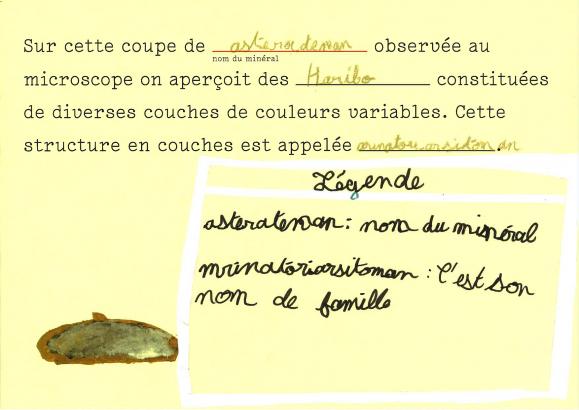 Sur cette coupe de asterademan observée au
nom du minéral
microscope on aperçoit des Haribo constituées
de diverses couches de couleurs variables. Cette
structure en couches est appelée
Légende
asterateman : nom du minéral
mrinatoriarsitoman : c'est son
nom de famille